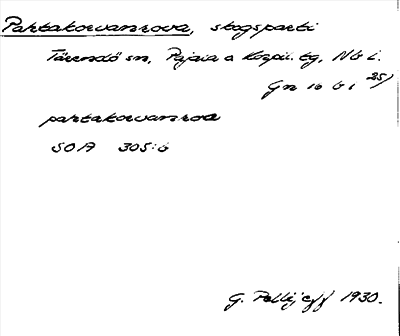 Partakorvanrova, skogsparti
Tärendö sn, Pajala o Korpil. tg, Nb l.
Gn 10 b 1 25/
partakorvanrova
SOA 305:6
G. Pellijeff 1930.